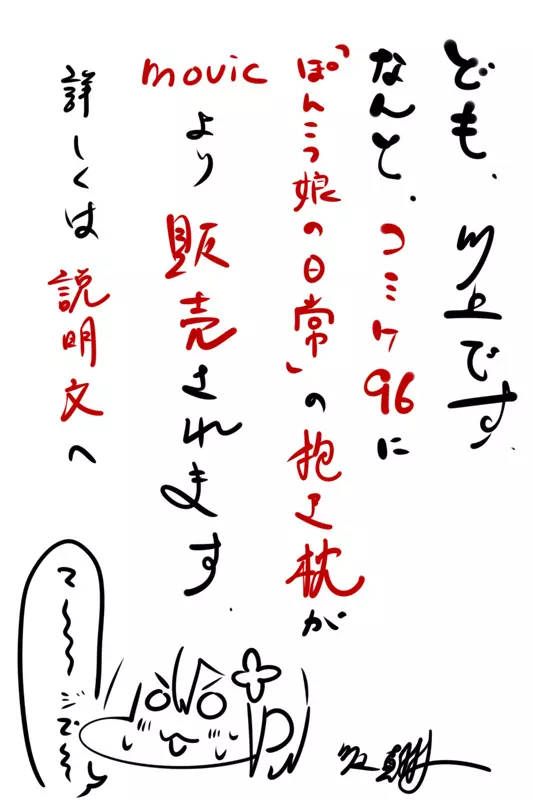 ども、川上です.
なんと、コミケ96に
「ぽんこつ娘の日常」の抱き枕が
movicより販売されます.
詳しくは説明文へ
て〜〜〜ジで〜